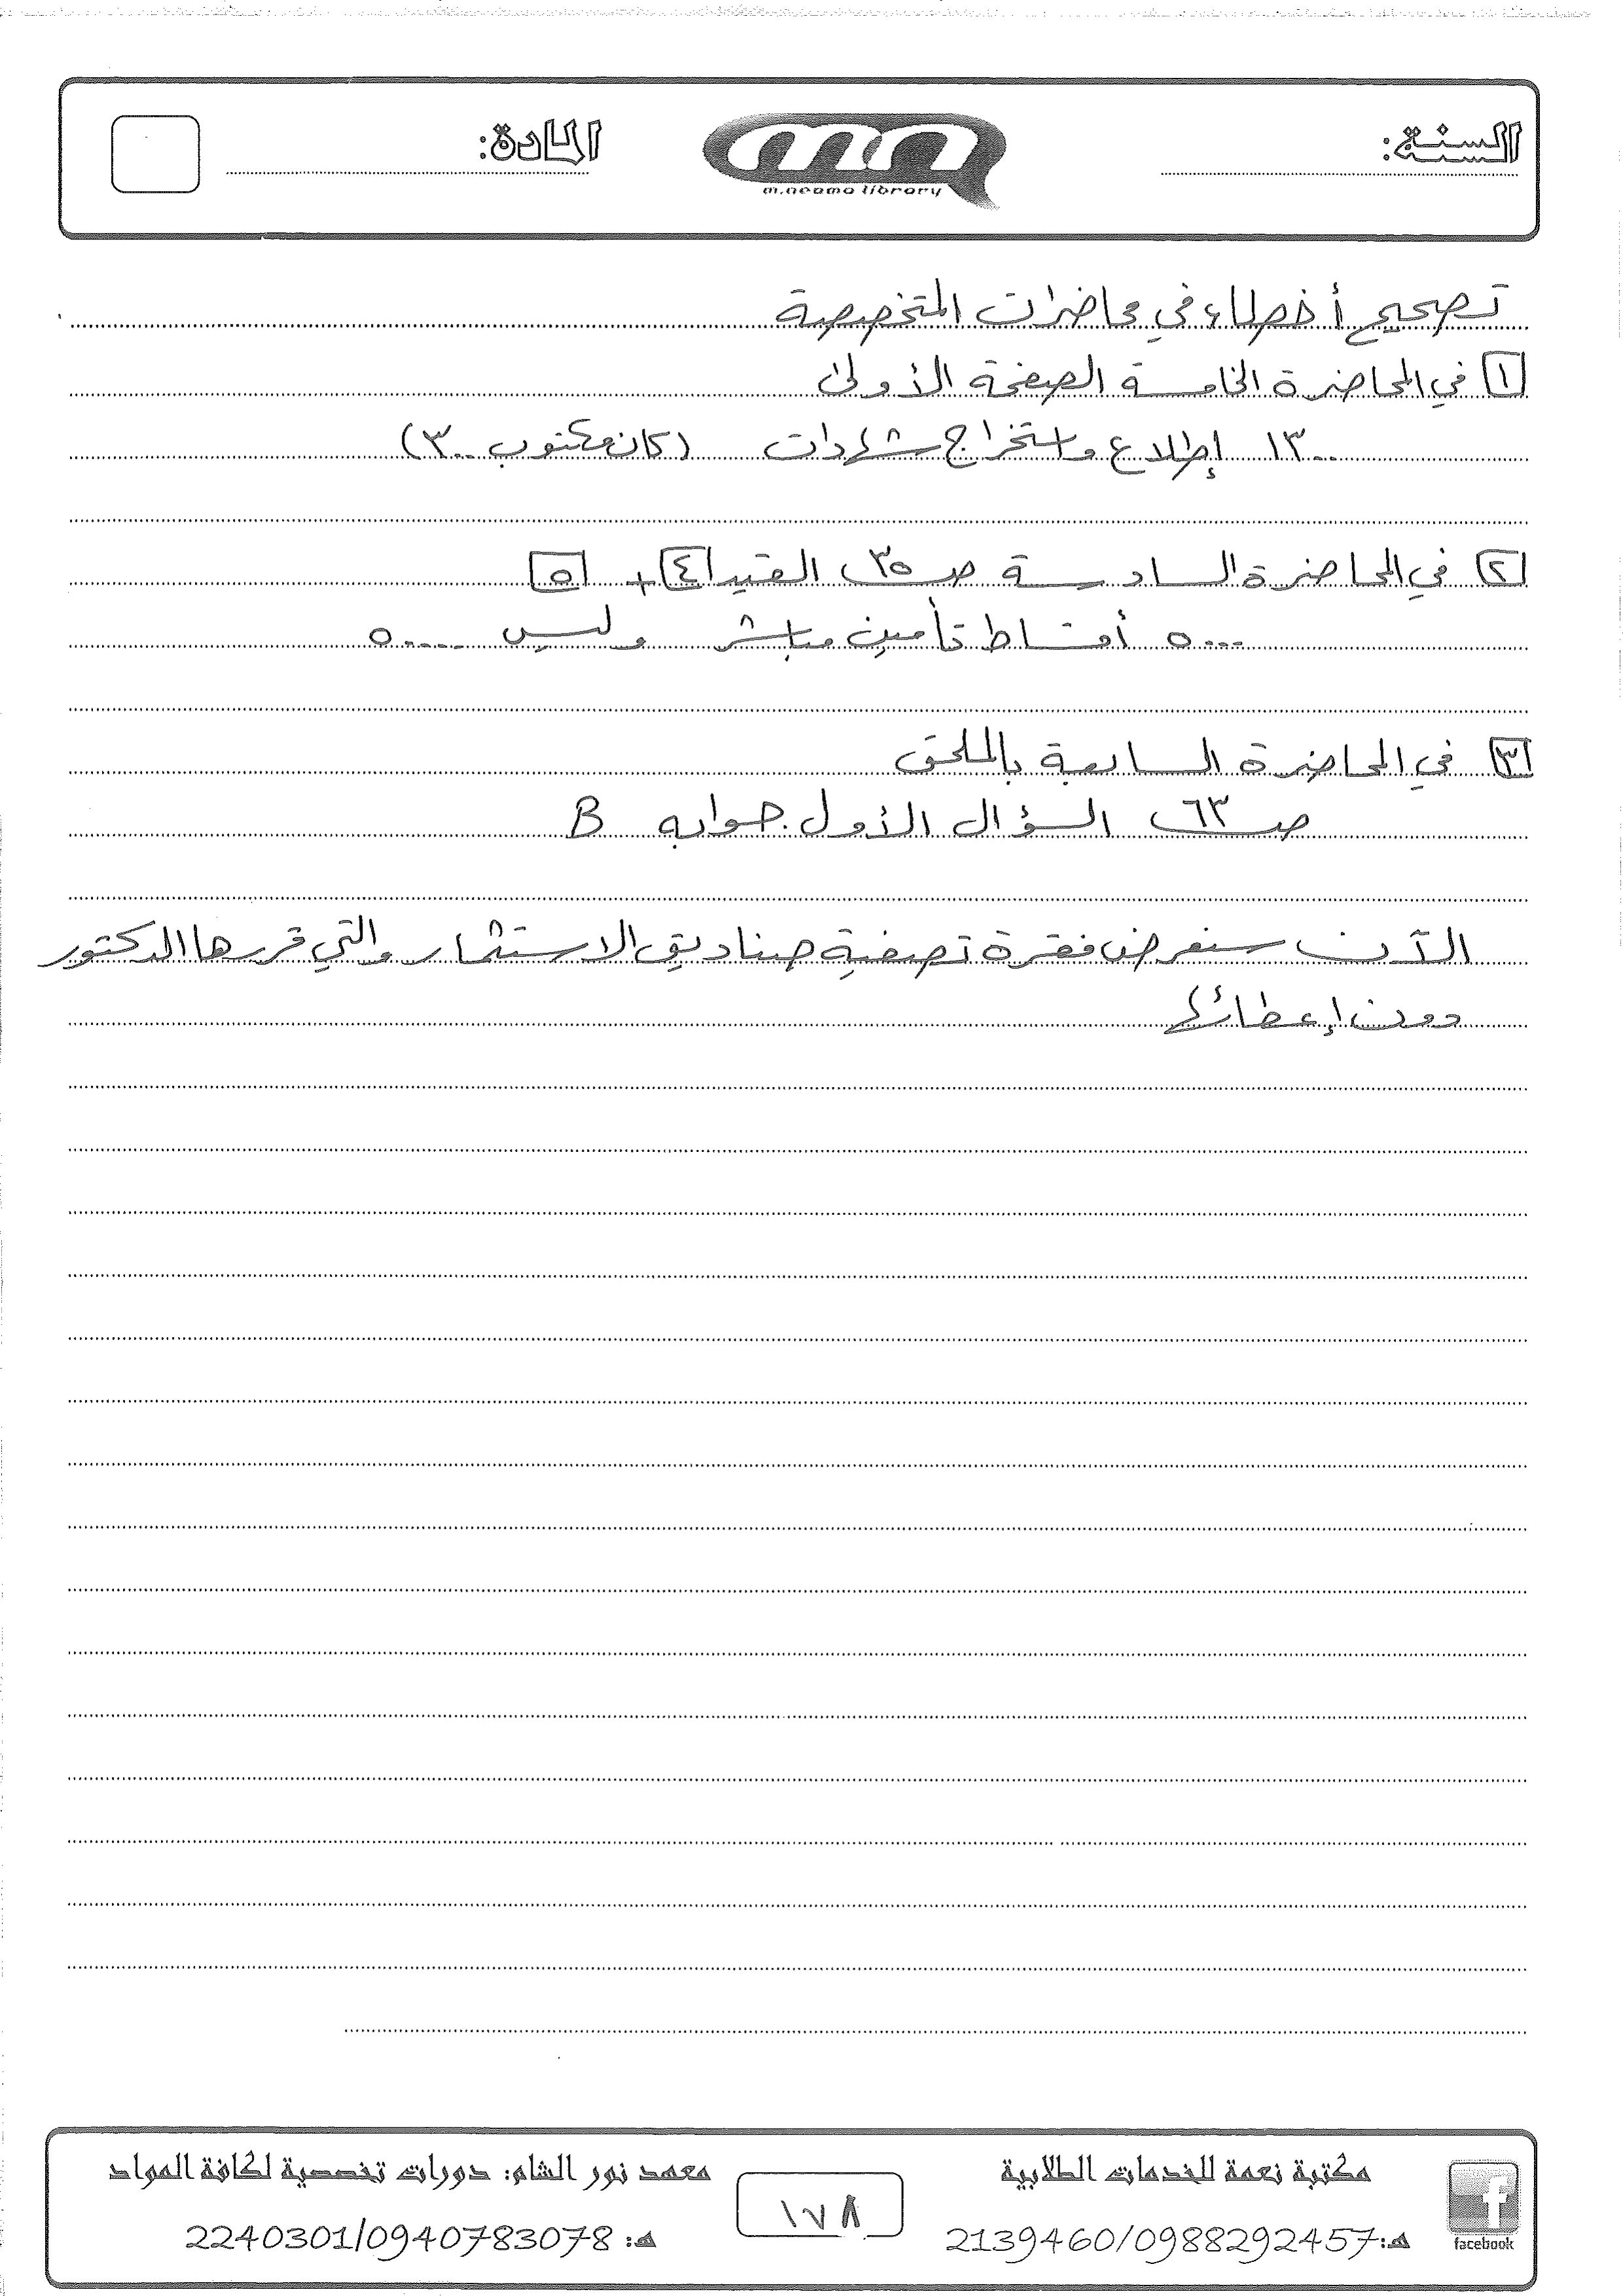 السنة:
المادة:
m.neama library
تصحيح أخطاء في محاضرات المتخصصة
١ في المحاضرة الخامسة الصفحة الأولى
١٣٠٠ إطلاع واستخراج شهادات (كان مكتوب ٣٠٠)
٢ في المحاضرة السادسة ص ٣٥ القيد ٤ + ٥
٥٠٠٠ أقساط تأمين مباشر وليس ٥٠٠٠٠
٣ في المحاضرة السابعة بالملحق
ص ٦٣ السؤال الأول جوابه B
الآن سنعرض فقرة تصفية صناديق الاستثمار والتي قررها الدكتور
دون إعطائها
مكتبة نعمة للخدمات الطلابية
هـ: 2139460/0988292457
facebook
١٧٨
معهد نور الشام: دورات تخصصية لكافة المواد
هـ: 2240301/0940783078